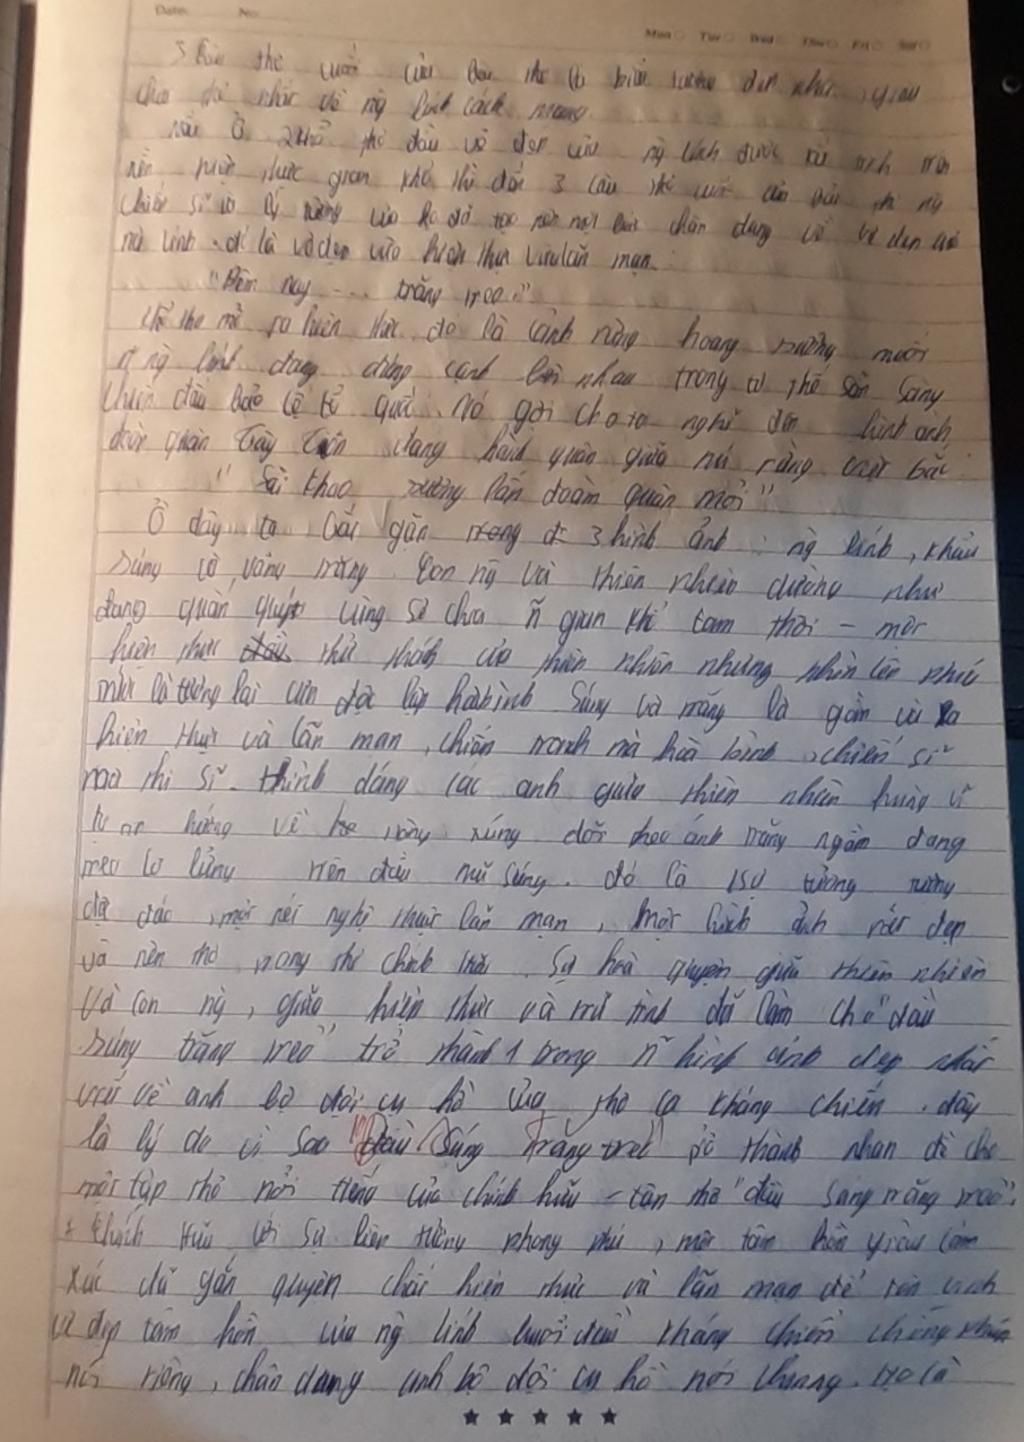 Date: No:
Mon Tue Wed Thu Fri Sat
3 câu thơ cuối của bài thơ là biểu tượng đẹp nhất, giàu
chất thơ nhất về ng lính cách mạng
nếu ở 2 khổ thơ đầu vẻ đẹp của ng lính được trên
nền hiện thực gian khổ thì đến 3 câu thơ cuối của bài thơ ng
chiến sĩ và lý tưởng của họ đã tạo nên một bức chân dung về vẻ đẹp của
ng lính. đó là vẻ đẹp vừa hiện thực vừa lãn mạn.
"Đêm nay .... trăng treo."
thơ mở ra hiện thực đó là cảnh rừng hoang sương muối
ng lính đang đứng cạnh bên nhau trong tư thế sẵn sàng
chiến đấu bảo vệ tổ quốc. Nó gợi cho ta nghĩ đến hình ảnh
đoàn quân Tây Tiến đang hành quân giữa núi rừng việt bắc
" Sài Khao sương lấp đoàm quân mỏi"
Ở đây ta bắt gặp 3 hình ảnh : ng lính, khẩu
súng và vầng trăng. Con ng và thiên nhiên dường như
đang quấn quýt cùng sẻ chia ~n gian khổ tam thời - một
hiện thực thử thách của thiên nhiên nhưng nhìn lên phía
mùi là tương lai của độc lập hoà bình Súng và trăng là gần và xa
hiện thực và lãn mạn, chiến tranh mà hoà bình, chiến sĩ
mà thi sĩ. hình dáng các anh giữa thiên nhiên hùng vĩ
hướng về súng dõi theo ánh trăng ngần đang
treo lơ lửng trên đầu mũi súng. đó là sự tưởng tượng
độc đáo, một nét nghệ thuật lãn mạn, một hình ảnh rất đẹp
và nên thơ trong thơ chính Hữu. Sự hoà quyện giữa thiên nhiên
và con ng, giữa hiện thực và trữ tình đã làm cho "đầu
súng trăng treo" trở thành 1 trong ~n hình ảnh đẹp nhất
viết về anh bộ đội cụ hồ của thơ ca kháng chiến. đây
là lý do vì sao "Đầu Súng Trăng treo" trở thành nhan đề cho
một tập thơ nổi tiếng của chính hữu - tập thơ "đầu súng trăng treo".
+ Chính Hữu với sự liên tưởng phong phú, một tâm hồn giàu cảm
xúc đã gắn quyện chất hiện thực và lãn mạn để tôn vinh
vẻ đẹp tâm hồn của ng lính buổi đầu kháng chiến chống Pháp
nói riêng, chân dung anh bộ đội cụ hồ nói chung.